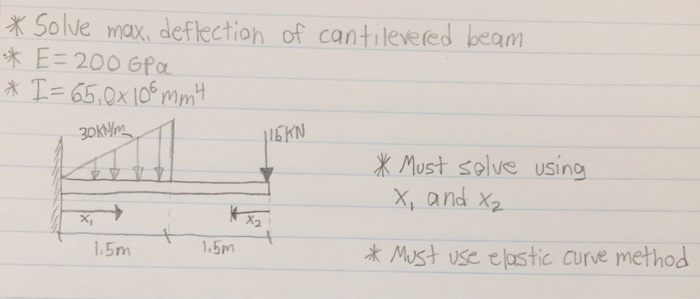 * Solve max. deflection of cantilevered beam
* E = 200 GPa
* I = 65.0x10⁶ mm⁴
30 kN/m
15KN
* Must solve using
x₁ and x₂
x₁
x₂
1.5m
1.5m
* Must use elastic curve method